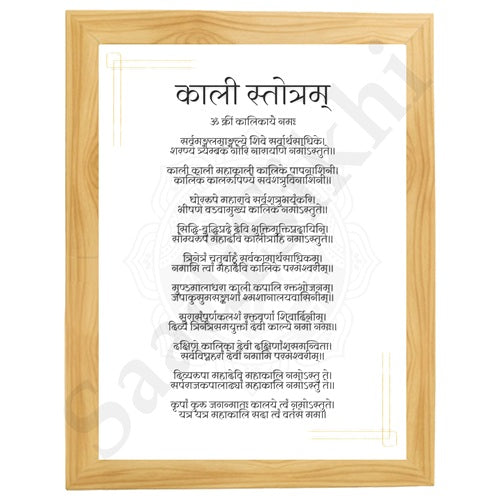 काली स्तोत्रम्
ॐ क्रीं कालिकायै नमः
सर्वमङ्गलमाङ्गल्ये शिवे सर्वार्थसाधिके।
शरण्ये त्र्यम्बके गौरि नारायणि नमोऽस्तुते॥
काली काली महाकाली कालिके पापनाशिनी।
कालिके कालरूपिण्ये सर्वशत्रुविनाशिनी॥
घोररूपे महारावे सर्वशत्रुभयंकरि।
भीषणे वडवामुख्ये कालिके नमोऽस्तुते॥
सिद्धि-बुद्धिप्रदे देवि भुक्तिमुक्तिप्रदायिनि।
सौम्यरूपे महादेवि कालीत्राहि नमोऽस्तुते॥
त्रिनेत्रं चतुर्बाहुं सर्वकामार्थसाधिकम्।
नमामि त्वां महादेवि कालिके परमेश्वरीम्॥
मुण्डमालाधरां काली कपालि रक्तभोजनम्।
जपाकुसुमसङ्काशां श्मशानालयवासिनीम्॥
सुरासंपूर्णकलशं रक्तवर्णां शिवार्दिनीम्।
दिव्यै त्रिनेत्रसमयुक्तां देवीं काल्ये नमो नमः॥
दक्षिणे कालिका देवी दिव्यांशसमन्विता।
सर्वविघ्नहरां देवीं नमामि परमेश्वरीम्॥
दिव्यरूपा महादेवि महाकालि नमोऽस्तु ते।
सर्पराजकपालाढ्यां महाकालि नमोऽस्तु ते॥
कृपां कुरु जगन्मातः कालये त्वं नमोऽस्तुते।
यत्र यत्र महाकालि सदा त्वं वतेस मम॥
Saadhakhi